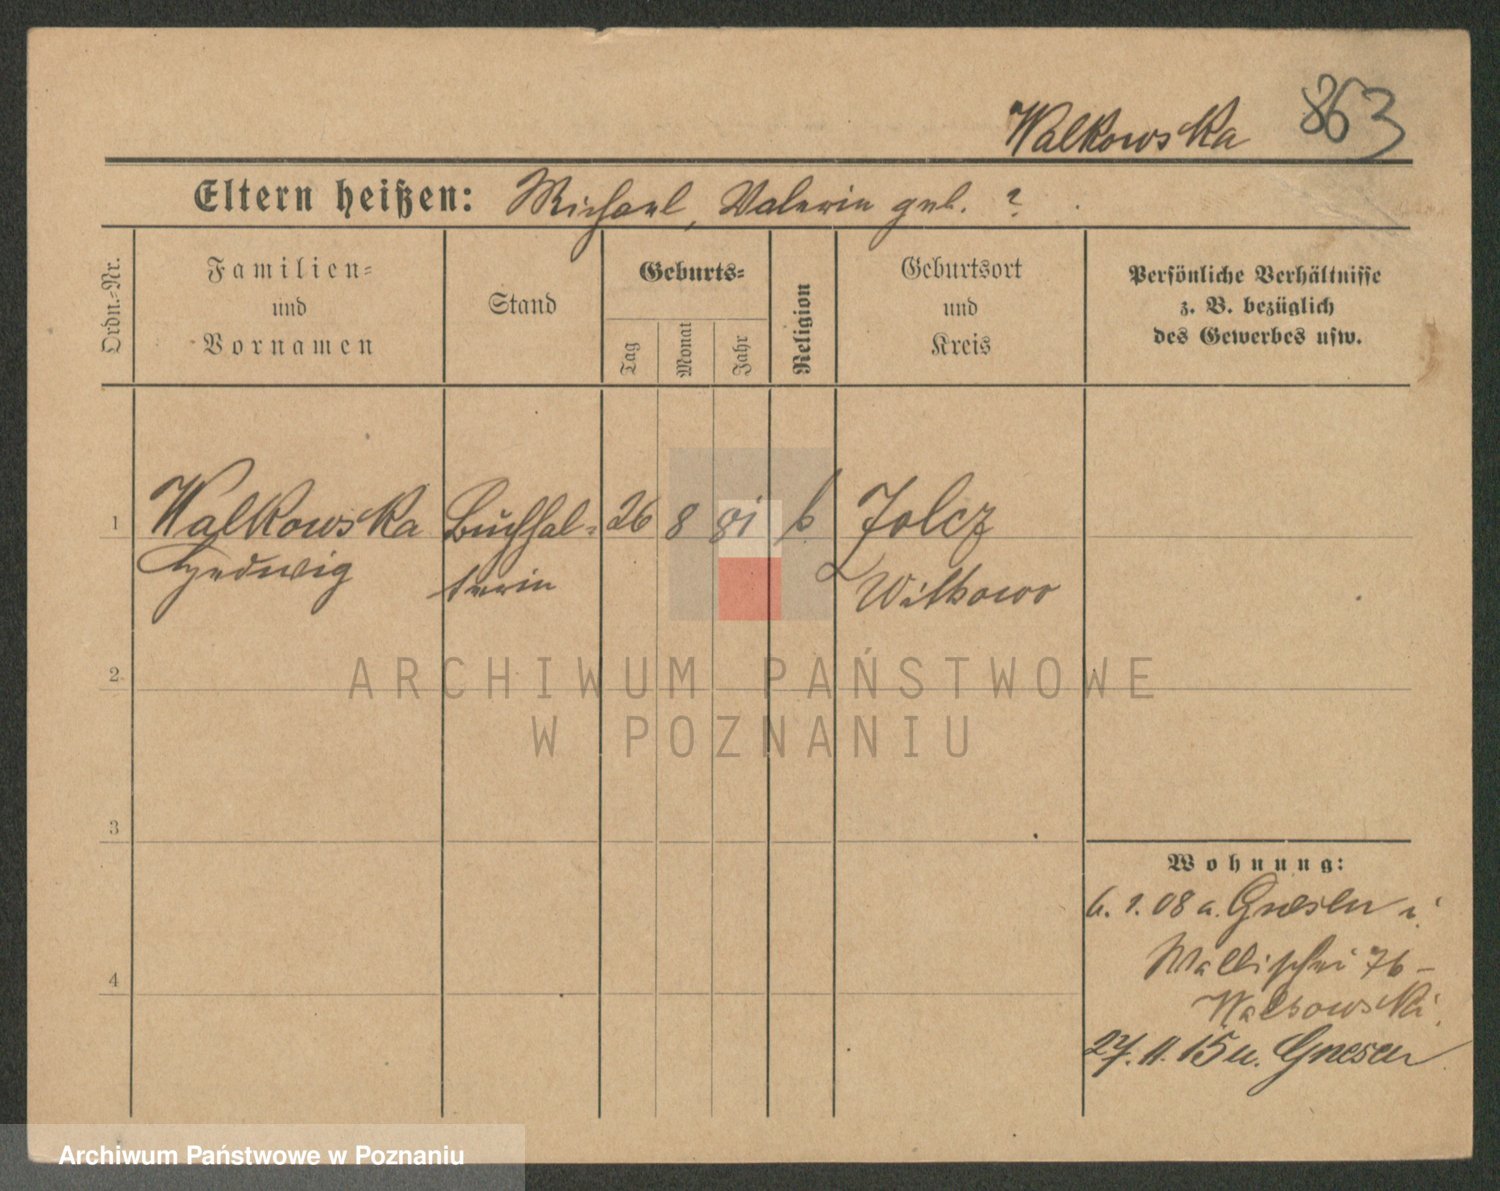 Walkowska 863
Eltern heißen: Michael, Valerie geb. ?
Ordn.-Nr.
Familien-
und
Vornamen
Stand
Geburts-
Tag
Monat
Jahr
Religion
Geburtsort
und
Kreis
Persönliche Verhältnisse
z. B. bezüglich
des Gewerbes usw.
1 Walkowska Buchhal- 26 8 81 k
Hedwig terin
Witkowo
2
3
4
Wohnung:
6. 1. 08 a. Gnesen
Wallischei 76
27. 11. 15 u. Gnesen
ARCHIWUM PAŃSTWOWE
W POZNANIU
Archiwum Państwowe w Poznaniu